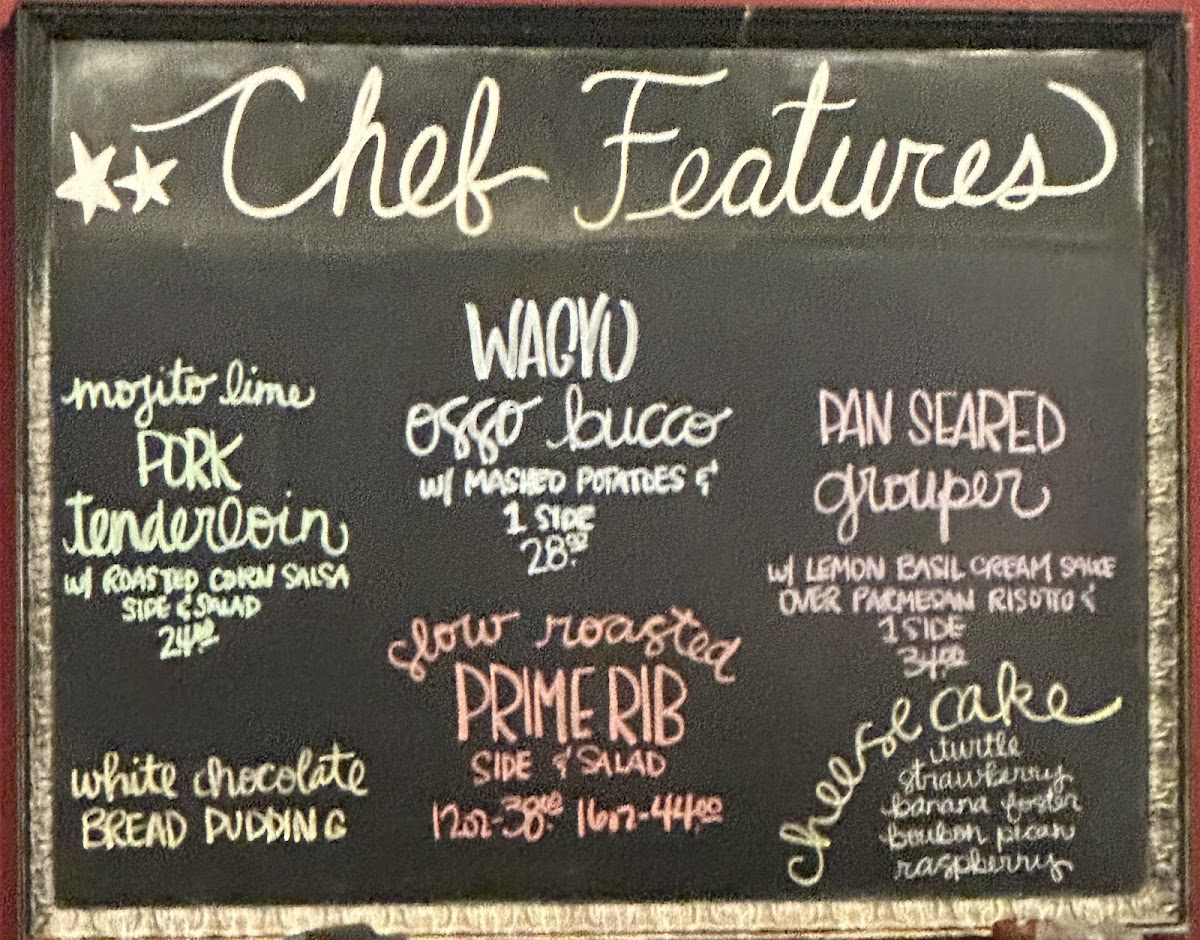 Chef Features
mojito lime
PORK
tenderloin
w/ ROASTED CORN SALSA
SIDE & SALAD
24.00
WAGYU
osso bucco
w/ MASHED POTATOES &
1 SIDE
28.00
PAN SEARED
grouper
w/ LEMON BASIL CREAM SAUCE
OVER PARMESAN RISOTTO &
1 SIDE
34.00
slow roasted
PRIME RIB
SIDE & SALAD
12oz-38.00 16oz-44.00
white chocolate
BREAD PUDDING
cheese cake
turtle
strawberry
banana foster
bourbon pecan
raspberry